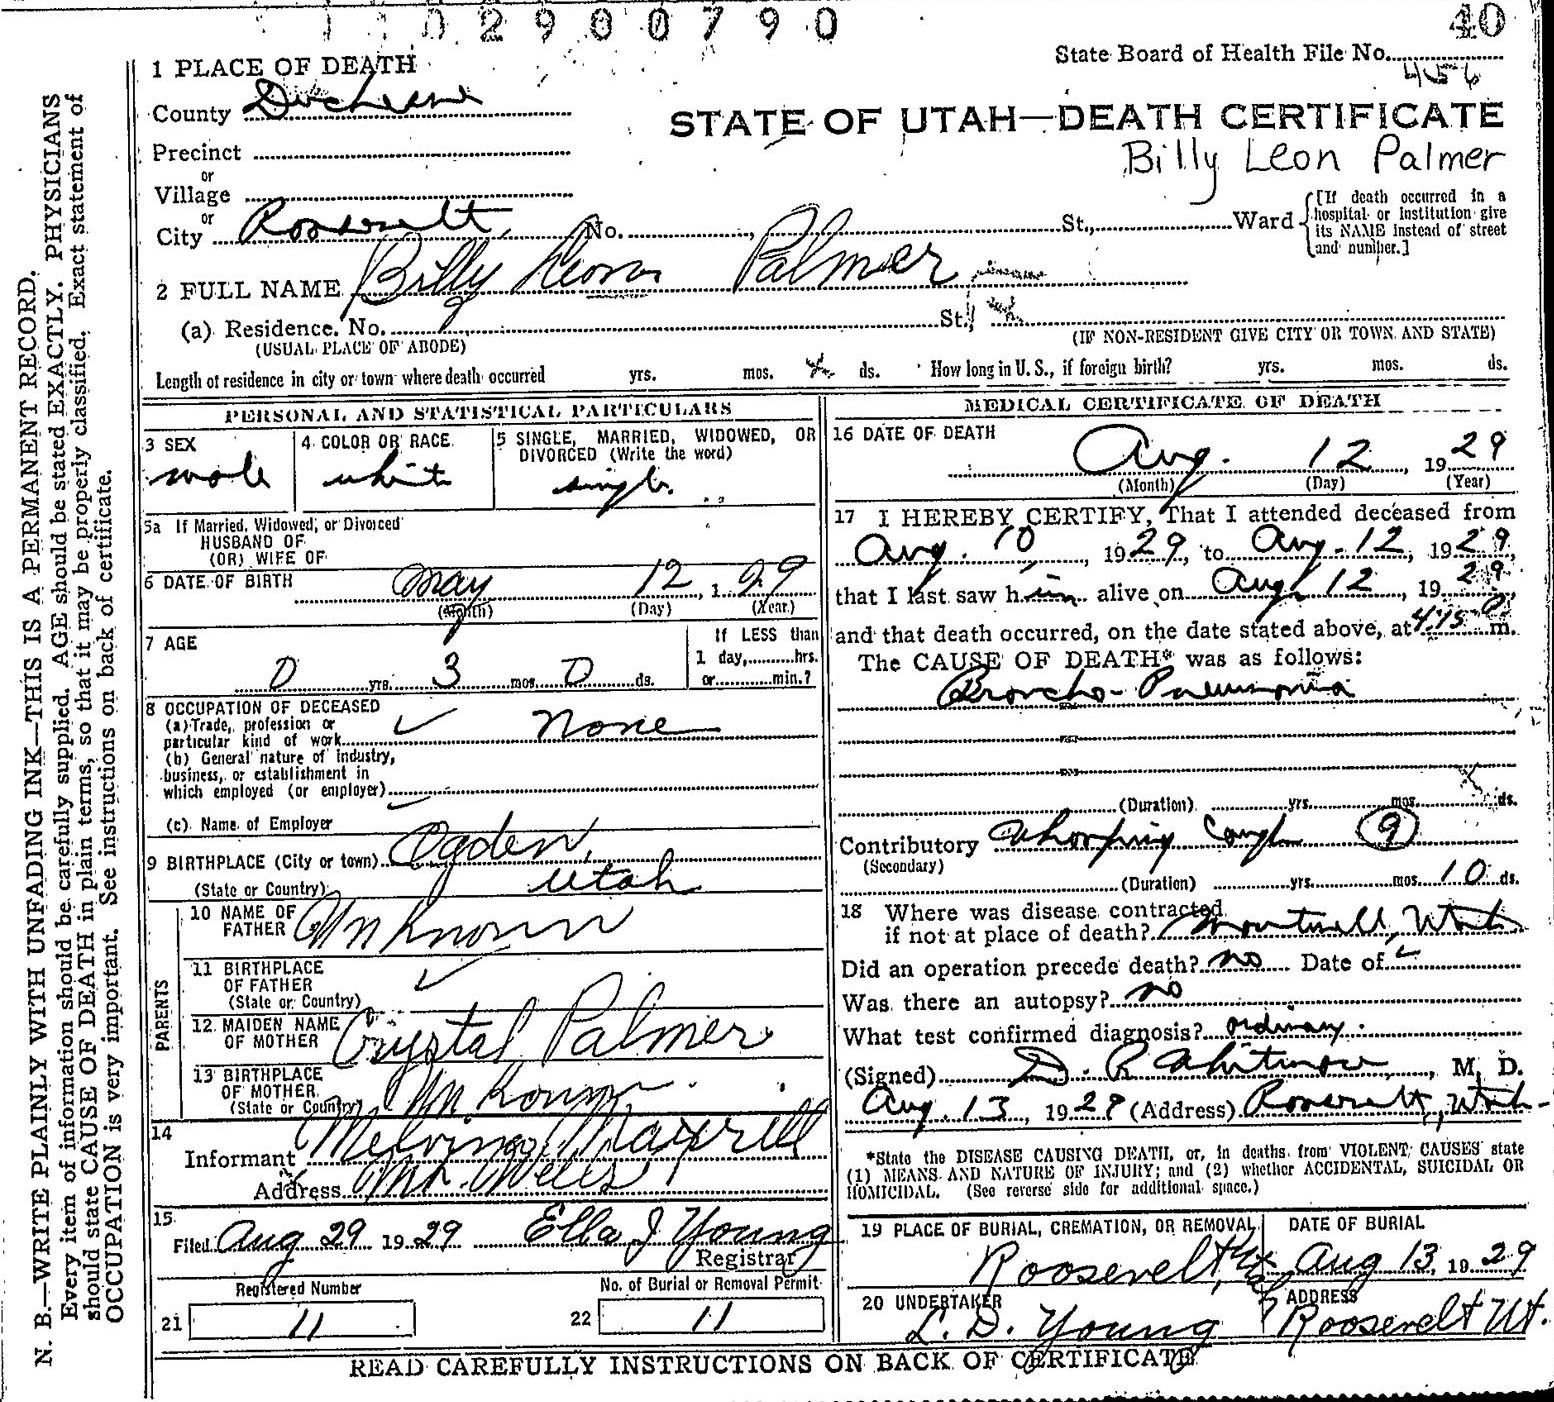 02900790
40
State Board of Health File No.
456
1 PLACE OF DEATH
County Duchesne
STATE OF UTAH—DEATH CERTIFICATE
Billy Leon Palmer
Precinct
or
Village
or
City Roosevelt No. St., Ward
[If death occurred in a hospital or institution give its NAME instead of street and number.]
2 FULL NAME Billy Leon Palmer
(a) Residence. No. St.
(USUAL PLACE OF ABODE) (IF NON-RESIDENT GIVE CITY OR TOWN AND STATE)
Length of residence in city or town where death occurred yrs. mos. ds. How long in U. S., if foreign birth? yrs. mos. ds.
PERSONAL AND STATISTICAL PARTICULARS
3 SEX 4 COLOR OR RACE 5 SINGLE, MARRIED, WIDOWED, OR DIVORCED (Write the word)
male white single
5a If Married, Widowed, or Divorced
HUSBAND OF
(OR) WIFE OF
6 DATE OF BIRTH May 12, 1 29
(Month) (Day) (Year)
7 AGE
0 yrs. 3 mos. 0 ds.
If LESS than
1 day, hrs.
or min.?
8 OCCUPATION OF DECEASED
(a) Trade, profession or
particular kind of work None
(b) General nature of industry,
business, or establishment in
which employed (or employer)
(c) Name of Employer
9 BIRTHPLACE (City or town) Ogden,
(State or Country) Utah
PARENTS
10 NAME OF FATHER Unknown
11 BIRTHPLACE OF FATHER
(State or Country)
12 MAIDEN NAME OF MOTHER Crystal Palmer
13 BIRTHPLACE OF MOTHER
(State or Country) Unknown
14
Informant Melvina Maxwell
Address
15
Filed Aug 29 1929 Ella J Young
Registrar
Registered Number No. of Burial or Removal Permit
21 11 22 11
MEDICAL CERTIFICATE OF DEATH
16 DATE OF DEATH
Aug. 12, 1929
(Month) (Day) (Year)
17 I HEREBY CERTIFY, That I attended deceased from
Aug. 10, 1929, to Aug. 12, 1929,
that I last saw him alive on Aug 12, 1929,
and that death occurred, on the date stated above, at 4:15 P m.
The CAUSE OF DEATH* was as follows:
Broncho-Pneumonia
(Duration) yrs. mos. ds.
Contributory Whooping Cough 9
(Secondary)
(Duration) yrs. mos. 10 ds.
18 Where was disease contracted
if not at place of death? Utah
Did an operation precede death? no Date of
Was there an autopsy? no
What test confirmed diagnosis? ordinary.
(Signed) D. R. Whitmore, M. D.
Aug. 13, 1929 (Address) Roosevelt, Utah
*State the DISEASE CAUSING DEATH, or, in deaths from VIOLENT CAUSES state
(1) MEANS AND NATURE OF INJURY; and (2) whether ACCIDENTAL, SUICIDAL OR
HOMICIDAL. (See reverse side for additional space.)
19 PLACE OF BURIAL, CREMATION, OR REMOVAL DATE OF BURIAL
Roosevelt, Utah Aug 13, 1929
20 UNDERTAKER ADDRESS
L. D. Young Roosevelt Ut.
READ CAREFULLY INSTRUCTIONS ON BACK OF CERTIFICATE
N. B.—WRITE PLAINLY WITH UNFADING INK—THIS IS A PERMANENT RECORD.
Every item of information should be carefully supplied. AGE should be stated EXACTLY. PHYSICIANS
should state CAUSE OF DEATH in plain terms, so that it may be properly classified. Exact statement of
OCCUPATION is very important. See instructions on back of certificate.